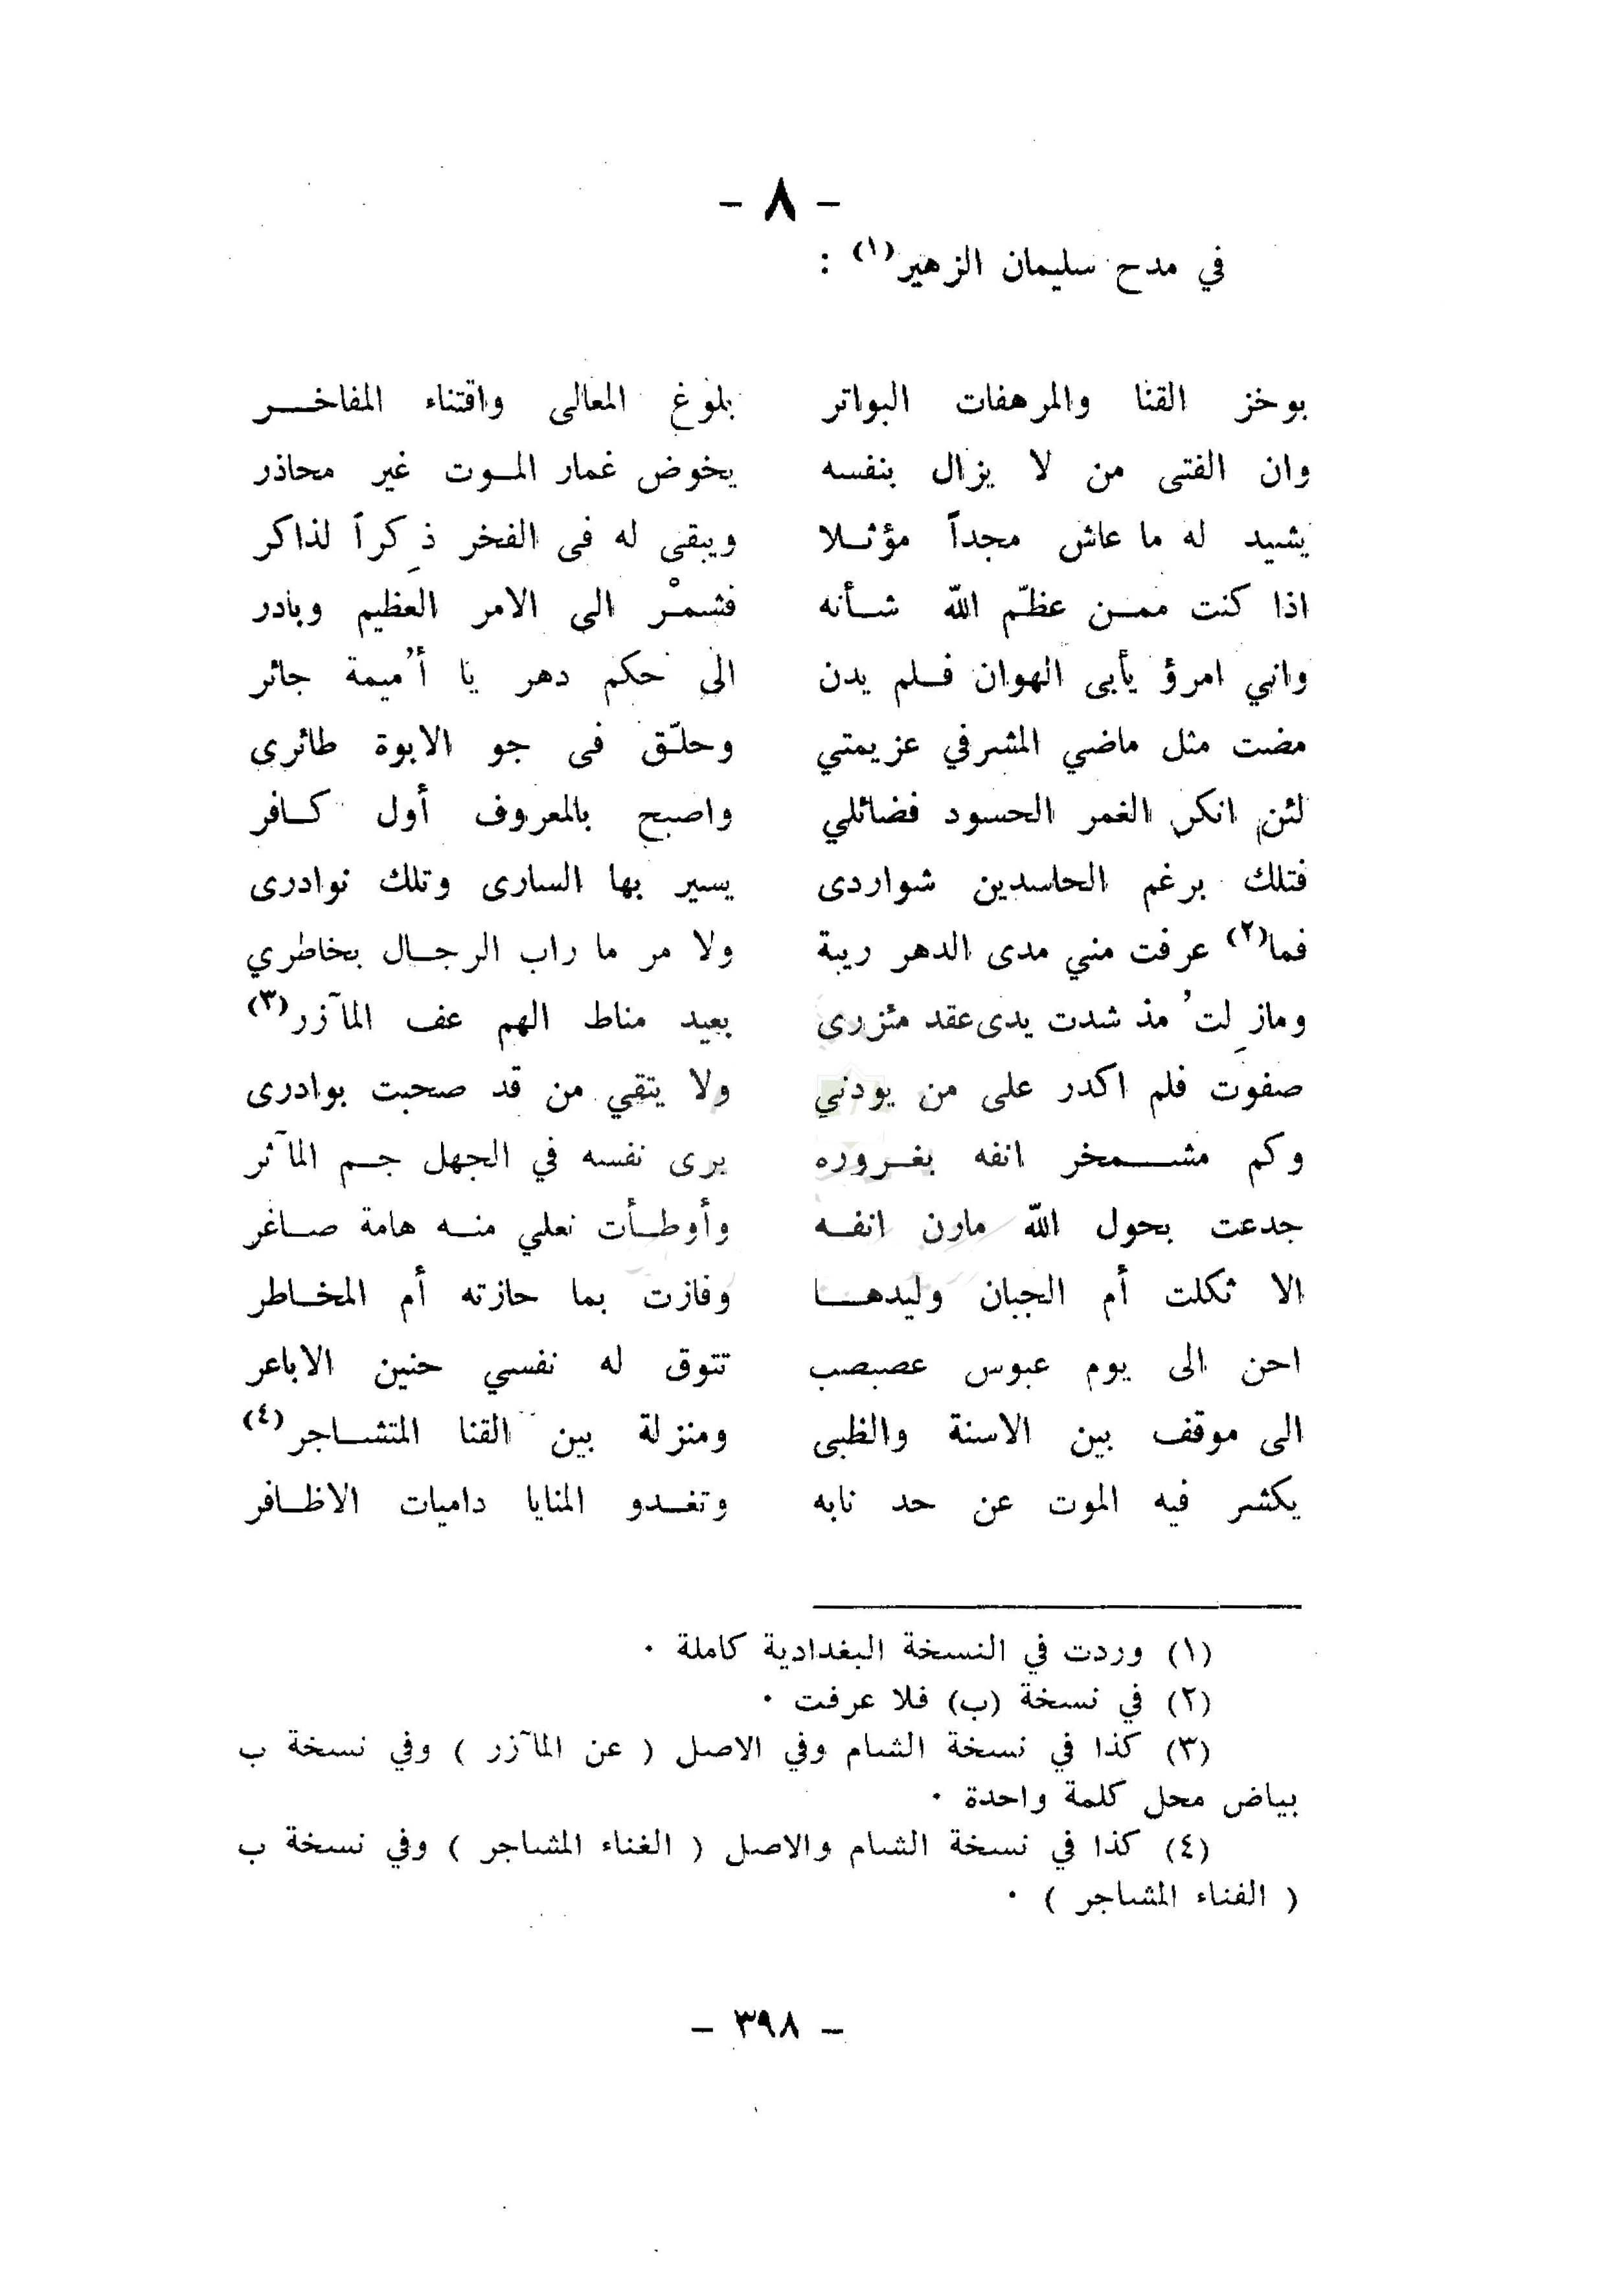 - ٨ -
في مدح سليمان الزهير(١) :
بوخز القنا والمرهفات البواتر بلوغ المعالى واقتناء المفاخـــر
وان الفتى من لا يزال بنفسه يخوض غمار المـوت غير محاذر
يشيد له ما عاش مجداً مؤثـلا ويبقى له فى الفخر ذِكراً لذاكر
اذا كنت ممـن عظّم الله شـأنه فشمـْر الى الامر العظيم وبادر
واني امرؤ يأبى الهوان فـلم يدن الى حكم دهر يا أُميمة جائر
مضت مثل ماضي المشرفي عزيمتي وحلّـق فى جو الابوة طائرى
لئن انكر الغمر الحسود فضائلي واصبح بالمعروف أول كـافر
فتلك برغم الحاسدين شواردى يسير بها السارى وتلك نوادرى
فما(٢) عرفت مني مدى الدهر ريبة ولا مر ما راب الرجـال بخاطري
ومازِلتُ مذ شدت يدى عقد مئزرى بعيد مناط الهم عف المآزر(٣)
صفوت فلم اكدر على من يودني ولا يتقي من قد صحبت بوادرى
وكم مشـــمخر انفه بغـروره يرى نفسه في الجهل جـم المآثر
جدعت بحول الله مارن انفـه وأوطـأت نعلي منـه هامة صـاغر
الا ثكلت أم الجبان وليدهـــا وفازت بما حازته أم المخـاطر
احن الى يوم عبوس عصبصب تتوق له نفسي حنين الاباعر
الى موقف بين الاسنة والظبى ومنزلة بين القنا المتشـاجر(٤)
يكشر فيه الموت عن حد نابه وتغـدو المنايا داميات الاظـافر
(١) وردت في النسخة البغدادية كاملة ٠
(٢) في نسخة (ب) فلا عرفت ٠
(٣) كذا في نسخة الشام وفي الاصل ( عن المآزر ) وفي نسخة ب
بياض محل كلمة واحدة ٠
(٤) كذا في نسخة الشام والاصل ( الغناء المشاجر ) وفي نسخة ب
( الفناء المشاجر ) ٠
- ٣٩٨ -